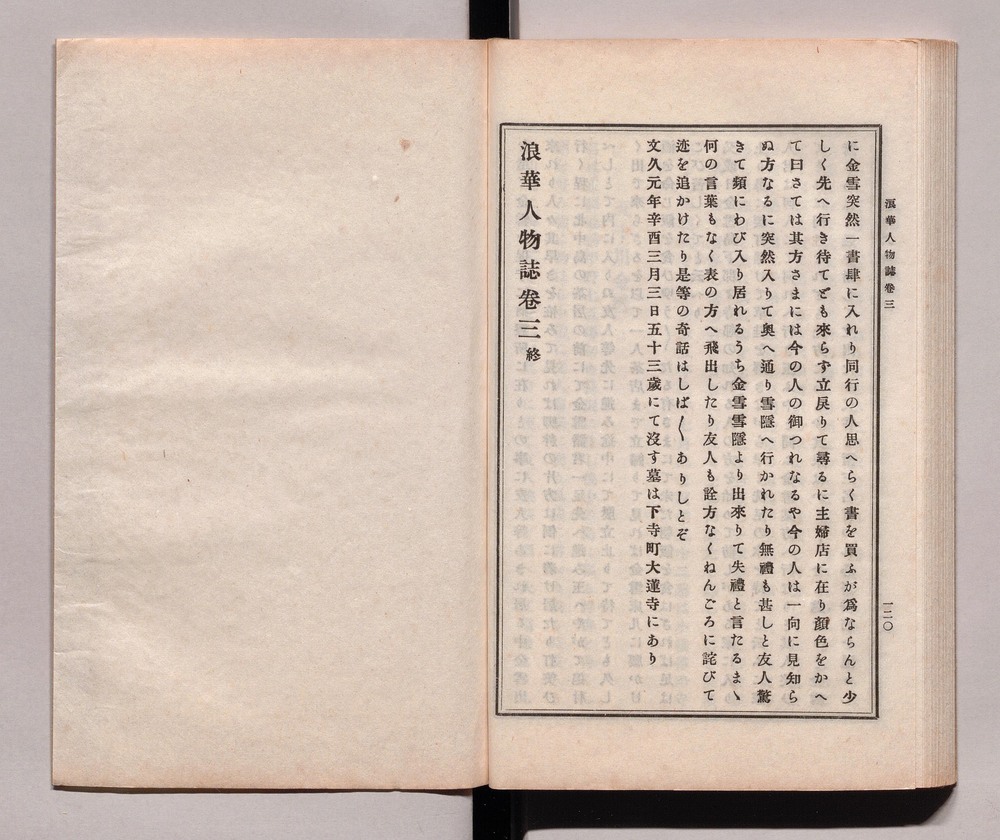 浪華人物誌卷三
一二〇
に金雪突然一書肆に入れり同行の人思へらく書を買ふが爲ならんと少
しく先へ行き待てども來らず立戻りて尋るに主婦店に在り顏色をかへ
て曰さては其方さまには今の人の御つれなるや今の人は一向に見知ら
ぬ方なるに突然入りて奧へ通り雪隱へ行かれたり無禮も甚しと友人驚
きて頻にわび入り居れるうち金雪雪隱より出來りて失禮と言たるまゝ
何の言葉もなく表の方へ飛出したり友人も詮方なくねんごろに詫びて
迹を追かけたり是等の奇話はしば〳〵ありしとぞ
文久元年辛酉三月三日五十三歲にて沒す墓は下寺町大蓮寺にあり
浪華人物誌卷三終